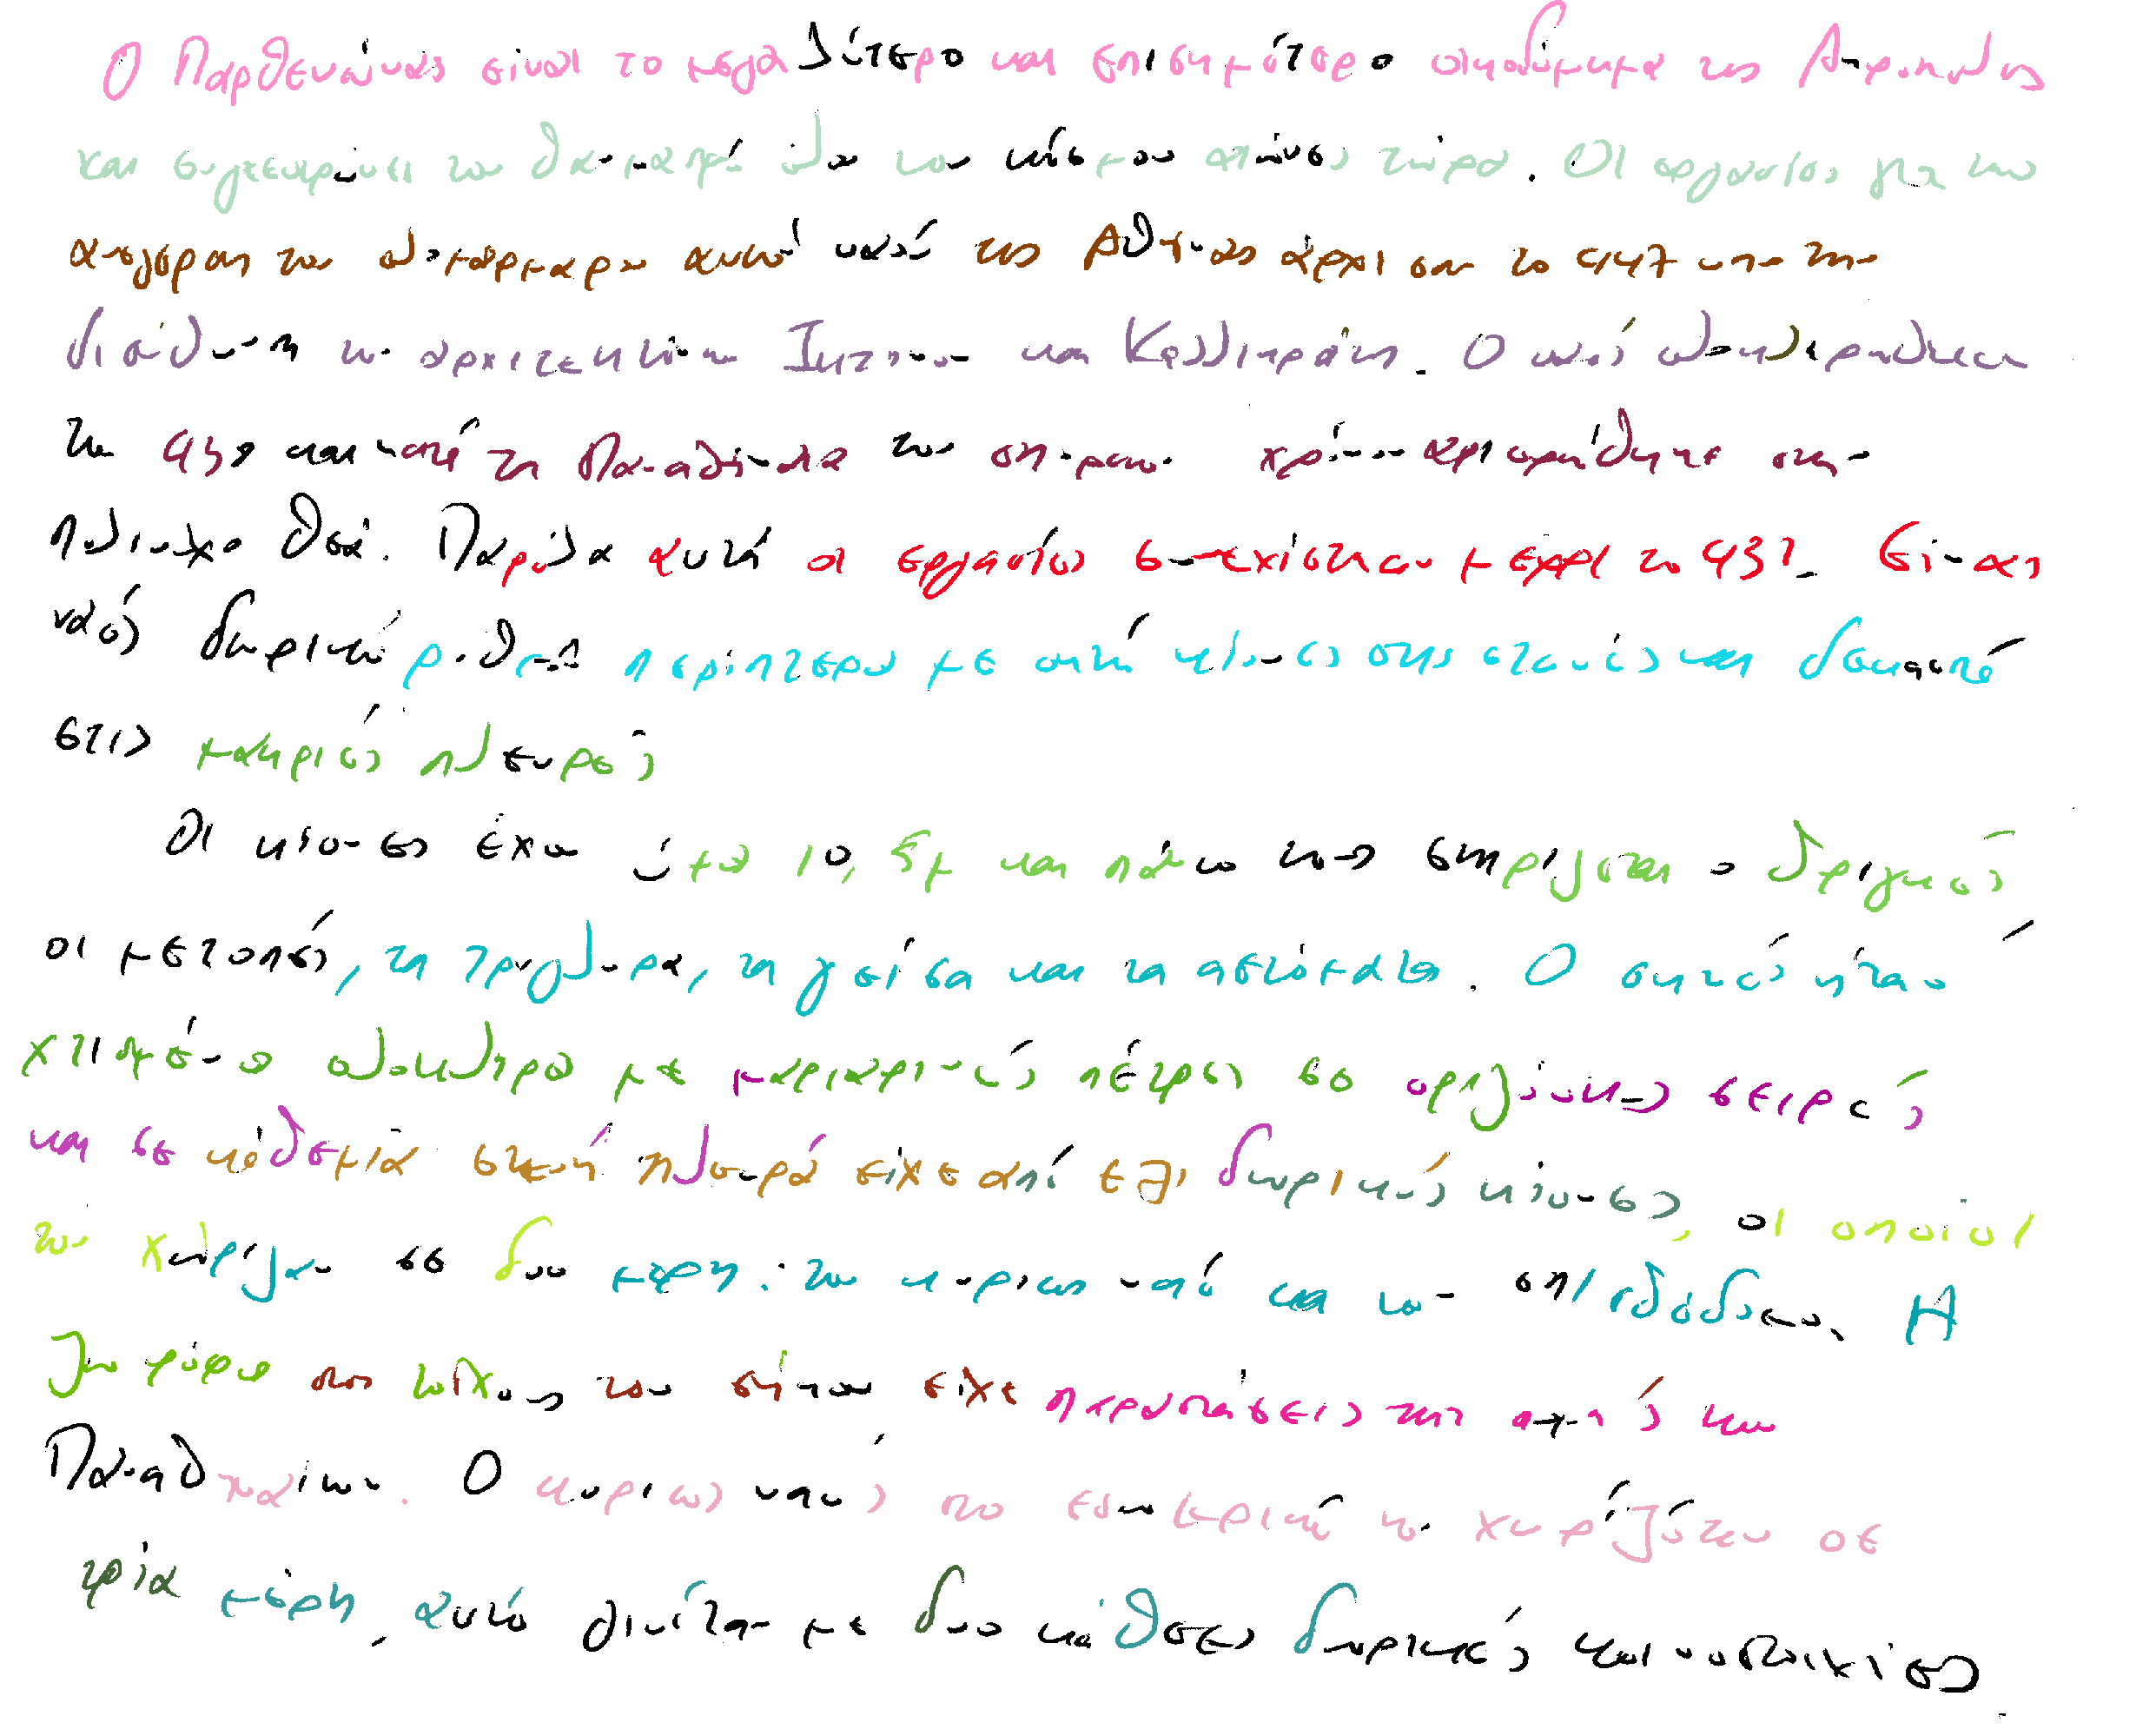 Ο Παρθενώνας είναι το μεγαλύτερο και επισημότερο οικοδόμημα της Ακροπόλης
και συγκεντρώνει τον θαυμασμό όλου του κόσμου απ' όνσες τώρα. Οι εργασίες για την
ανέγερση του ολομάρμαρου αυτού ναού της Αθηνάς άρχισαν το 447 υπό την
διεύθυνση των αρχιτεκτόνων Ικτίνου και Καλλικράτη. Ο ναός ολοκληρώθηκε
το 438 και κατά τα Παναθήναια του επόμενου χρόνου αφιερώθηκε στην
πολιούχο θεά. Παρόλα αυτά οι εργασίες συνεχίστηκαν μέχρι το 432. Είναι
ναός δωρικού ρυθμού περίπτερου με οκτώ κίονες στις στενές και δεκαεπτά
στις μακριές πλευρές
Οι κίονες έχουν ύψος 10,5μ και πάνω τους στηρίζεται ο θριγκός
οι μετοπές, τα τρίγλυφα, τα γείσα και τα αετώματα. Ο σηκός ήταν
χτισμένο ολόκληρο με μαρμαρινές πέτρες σε οριζόντιες σειρές
και σε κάθε μία στενή πλευρά είχε από έξι δωρικούς κίονες, οι οποίοι
τον χώριζαν σε δυο μέρη: τον κυρίως ναό και τον οπισθόδομο. Η
ζωφόρο στους τοίχους του σηκού είχε παραστάσεις της πομπής των
Παναθηναίων. Ο κυρίως ναός στο εσωτερικό του χωριζόταν σε
τρία μέρη, αυτό γινόταν με δυο κάθετες δωρικές κιονοστοιχίες